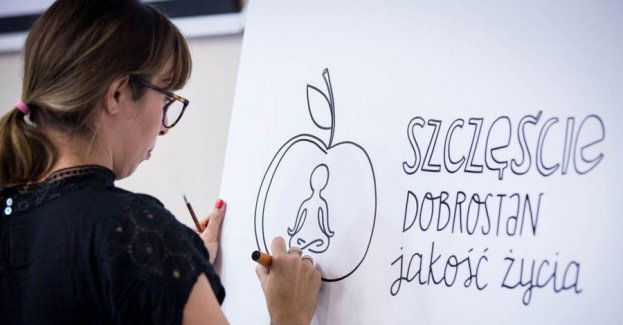 SZCZĘŚCIE
DOBROSTAN
jakość życia